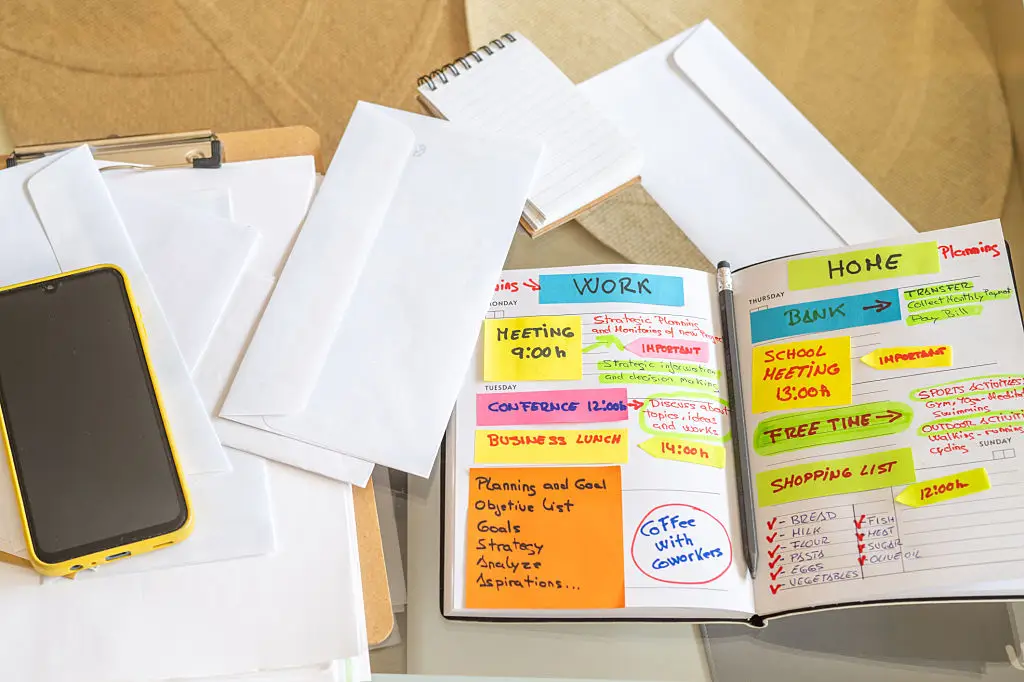 WORK
MONDAY
MEETING
9:00h
Strategic Planning
and Monitoring of new
IMPORTANT
Strategic information
and decision making
TUESDAY
CONFERNCE 12:00h
Discuss about
topics, ideas
and works
BUSINESS LUNCH
14:00h
Planning and Goal
Objetive List
Goals
Strategy
Analyze
Aspirations...
Coffee
with
coworkers
HOME
Planning
THURSDAY
BANK
TRANSFER
Collect Monthly Payment
Pay Bill
SCHOOL
MEETING
13:00h
IMPORTANT
FREE TIME
SPORTS ACTIVITIES
Gym, Yoga
Swimming
OUTDOOR ACTIVITI
Walking - running
cycling
SUNDAY
SHOPPING LIST
12:00h
- BREAD
- MILK
- FLOUR
- PASTA
- EGGS
- VEGETABLES
- FISH
- MEAT
- SUGAR
- OLIVE OIL